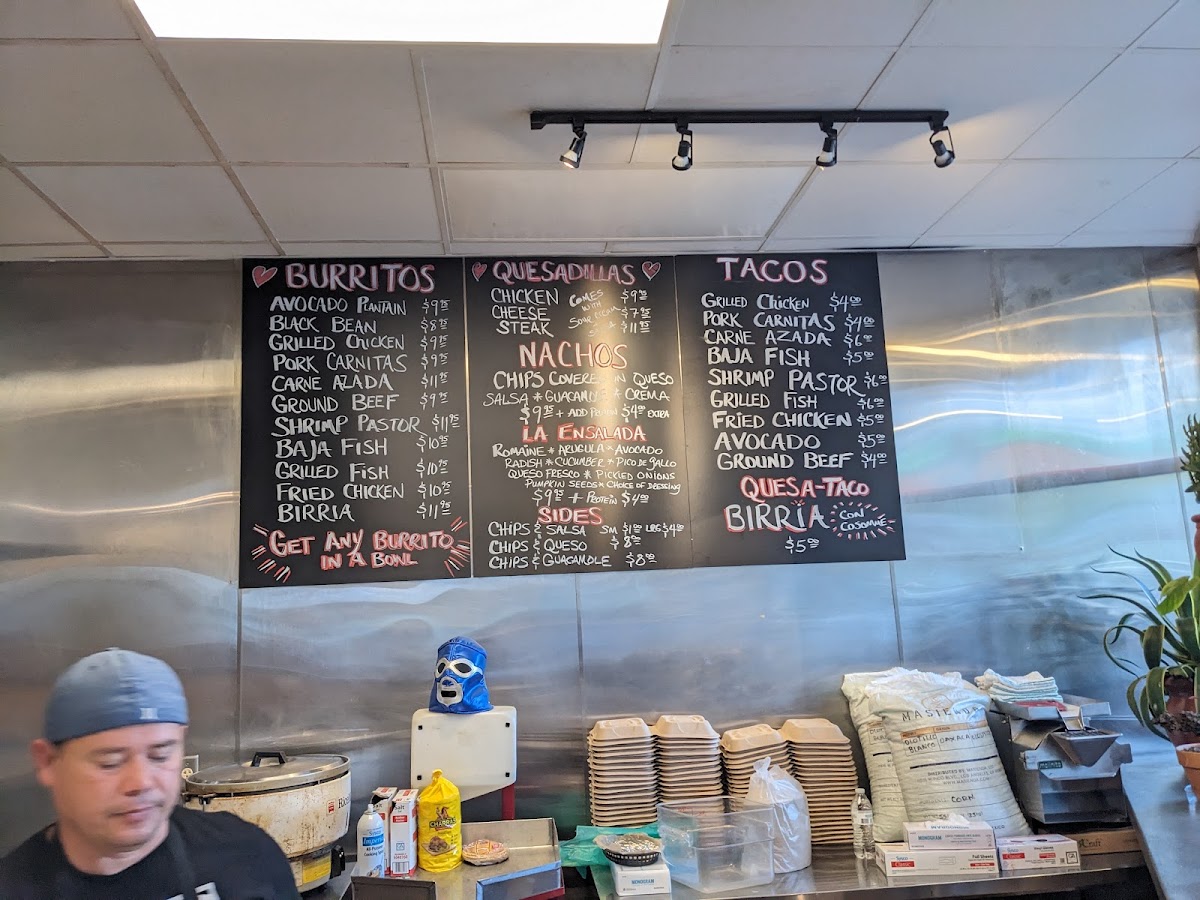 BURRITOS
AVOCADO PLANTAIN $9.95
BLACK BEAN $8.75
GRILLED CHICKEN $9.95
PORK CARNITAS $9.95
CARNE AZADA $11.95
GROUND BEEF $9.95
SHRIMP PASTOR $11.95
BAJA FISH $10.95
GRILLED FISH $10.95
FRIED CHICKEN $10.95
BIRRIA $11.95
GET ANY BURRITO
IN A BOWL
QUESADILLAS
CHICKEN $9.95
CHEESE $7.95
STEAK $11.95
COMES
WITH
SOUR CREAM
NACHOS
CHIPS COVERED IN QUESO
SALSA * GUACAMOLE * CREMA
$9.95 + ADD PROTEIN $4.00 EXTRA
LA ENSALADA
ROMAINE * ARUGULA * AVOCADO
RADISH * CUCUMBER * PICO DE GALLO
QUESO FRESCO * PICKLED ONIONS
PUMPKIN SEEDS * CHOICE OF DRESSING
$9.95 + PROTEIN $4.00
SIDES
CHIPS & SALSA SM $1.00 LRG $4.00
CHIPS & QUESO $8.00
CHIPS & GUACAMOLE $8.00
TACOS
GRILLED CHICKEN $4.00
PORK CARNITAS $4.00
CARNE AZADA $6.00
BAJA FISH $5.00
SHRIMP PASTOR $6.00
GRILLED FISH $6.00
FRIED CHICKEN $5.00
AVOCADO $5.00
GROUND BEEF $4.00
QUESA-TACO
BIRRIA CON
COSOMME
$5.00
MASIENDA
OLOTILLO
BLANCO OAXACA
CORN